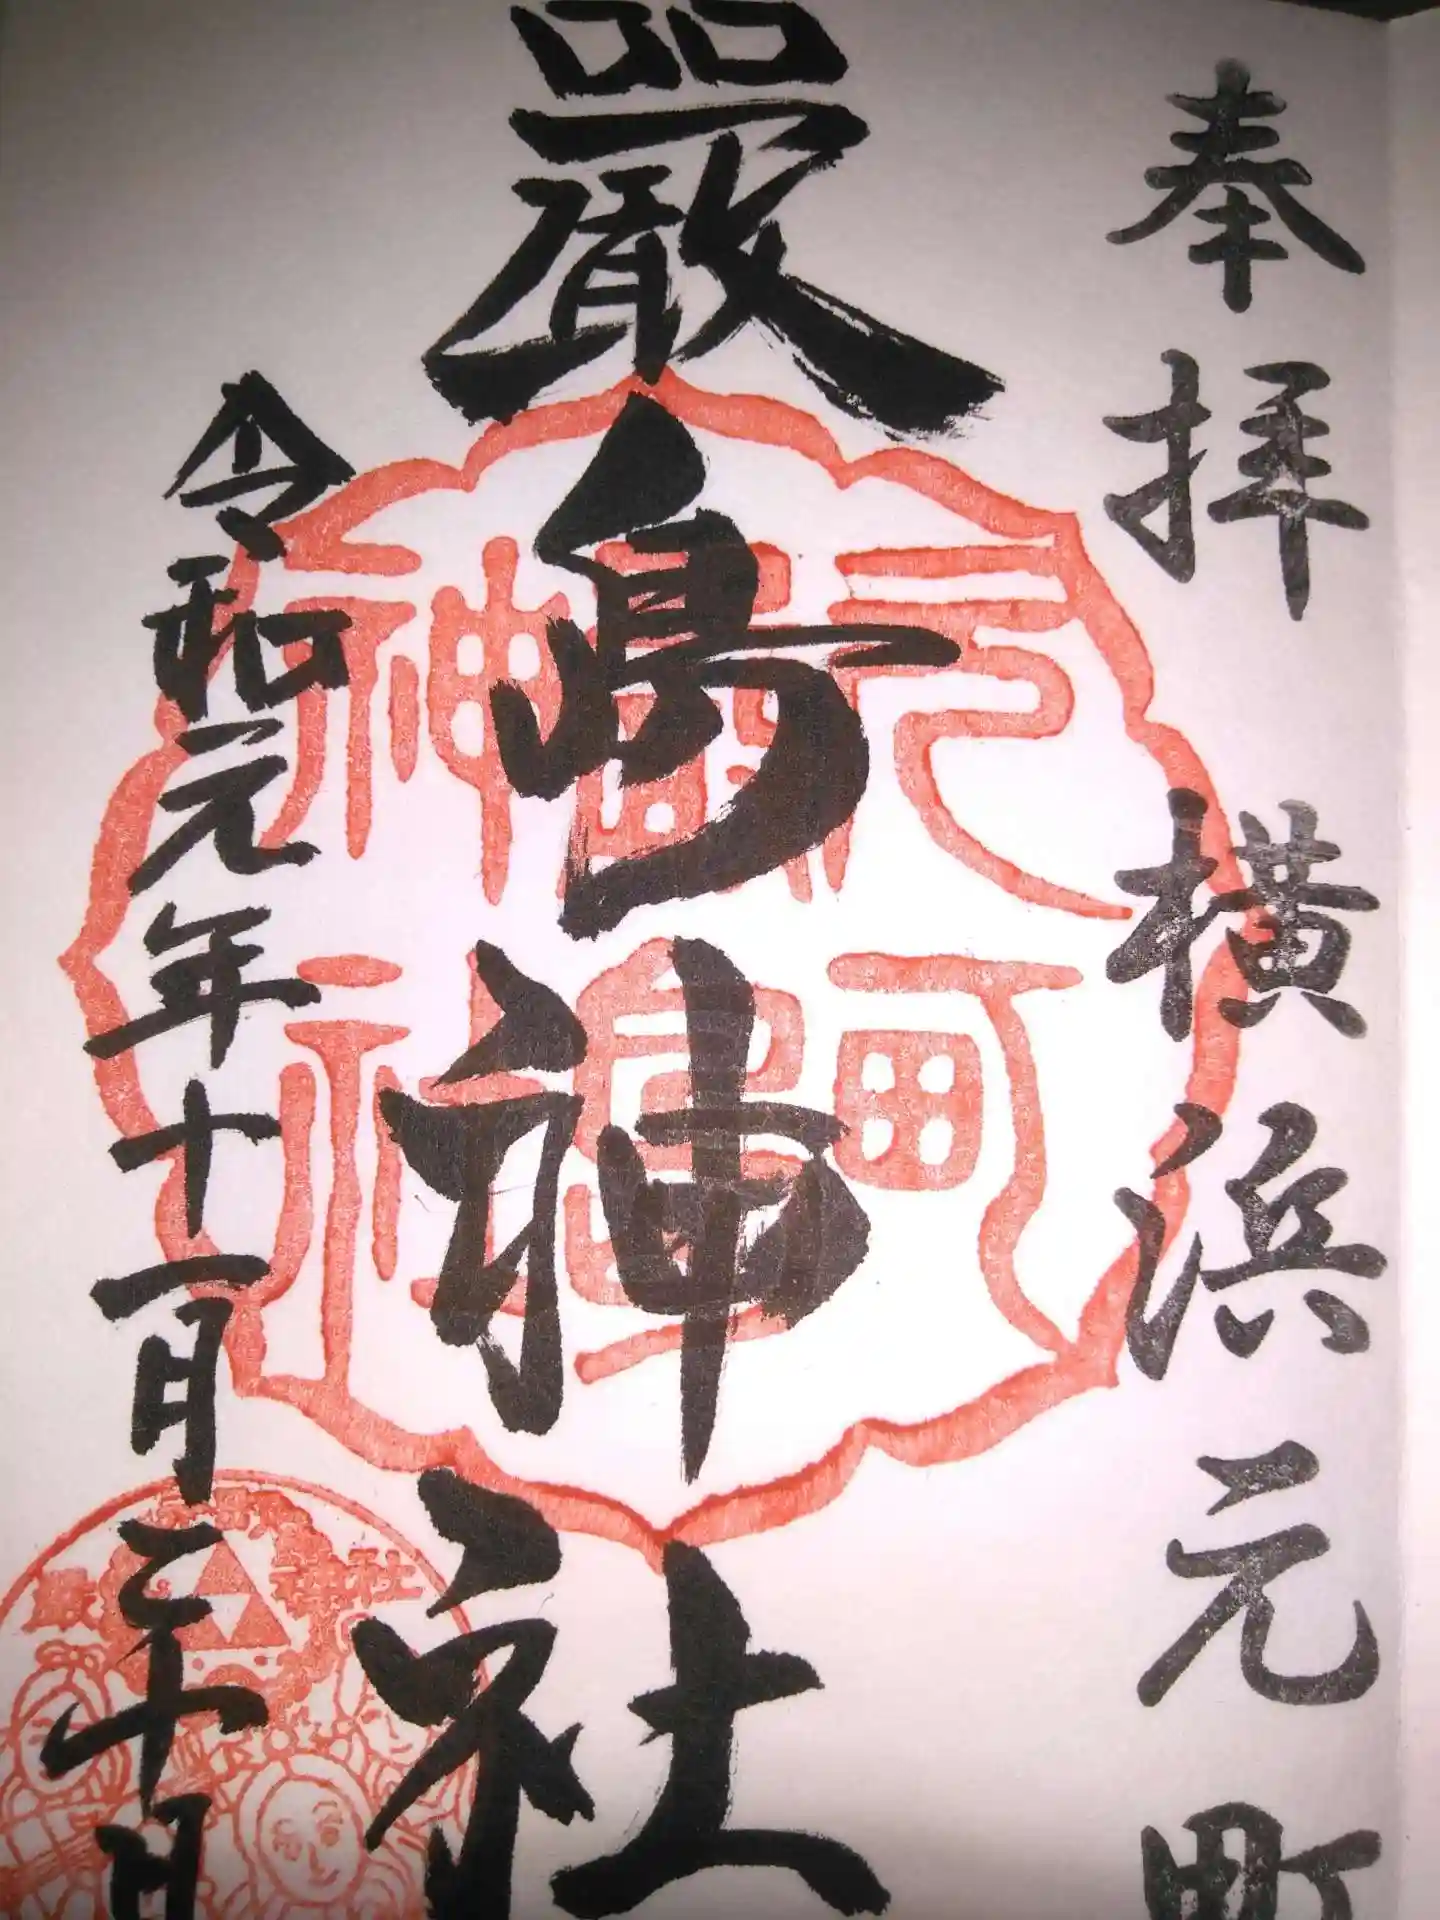 奉拝 横浜元町
嚴島神社
元町
嚴島
神社
令和元年十一月三十日